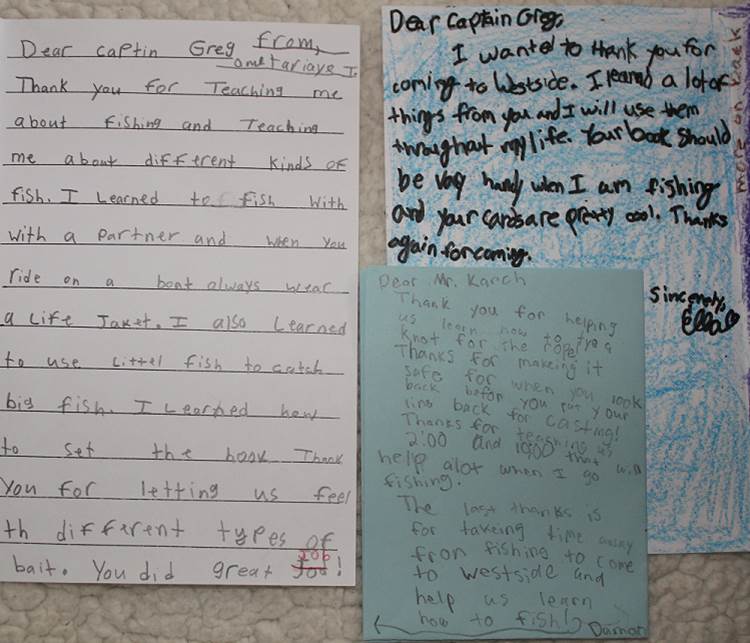 Dear captin Greg from,
Ometariaye I.
Thank you for Teaching me
about fishing and Teaching
me about different kinds of
fish. I Learned to fish with
with a partner and when you
ride on a boat always wear
a Life Jaket. I also Learned
to use Littel fish to catch
big fish. I Learned how
to set the hook Thank
You for letting us feel
th different types of
bait. You did great job!
Dear Captain Greg,
I wanted to thank you for
coming to Westside. I learned a lot of
things from you and I will use them
throughout my life. Your book should
be vary handy when I am fishing
and your cards are pretty cool. Thanks
again for coming.
Sincerely,
Ella
more on back
Dear Mr. Karch
Thank you for helping
us learn how to tye a
knot for the rope!
Thanks for makeing it
safe for when you look
back before you put your
line back for casting!
Thanks for teaching us
2:00 and 10:00 that will
help alot when I go
fishing.
The last thanks is
for takeing time away
fron fishing to come
to westside and
help us learn
how to fish!
Damon